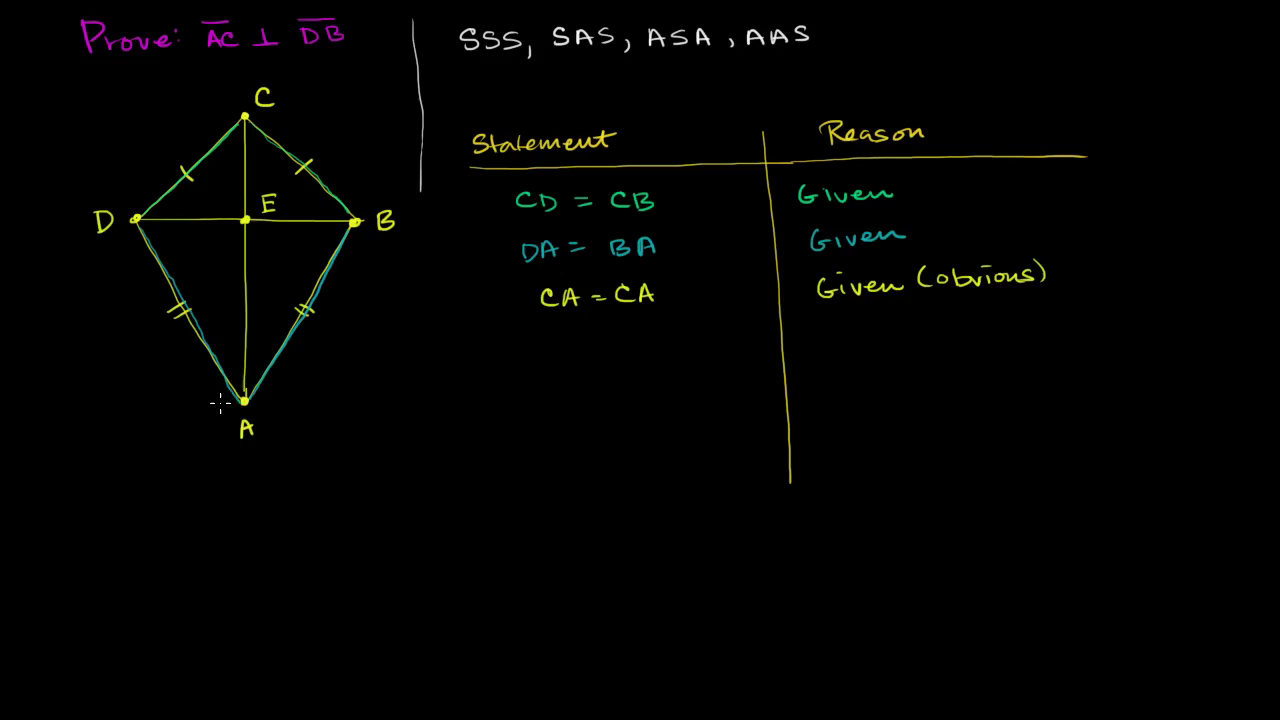 Prove: AC ⊥ DB
SSS, SAS, ASA, AAS
C
D
E
B
A
Statement Reason
CD = CB Given
DA = BA Given
CA = CA Given (obvious)